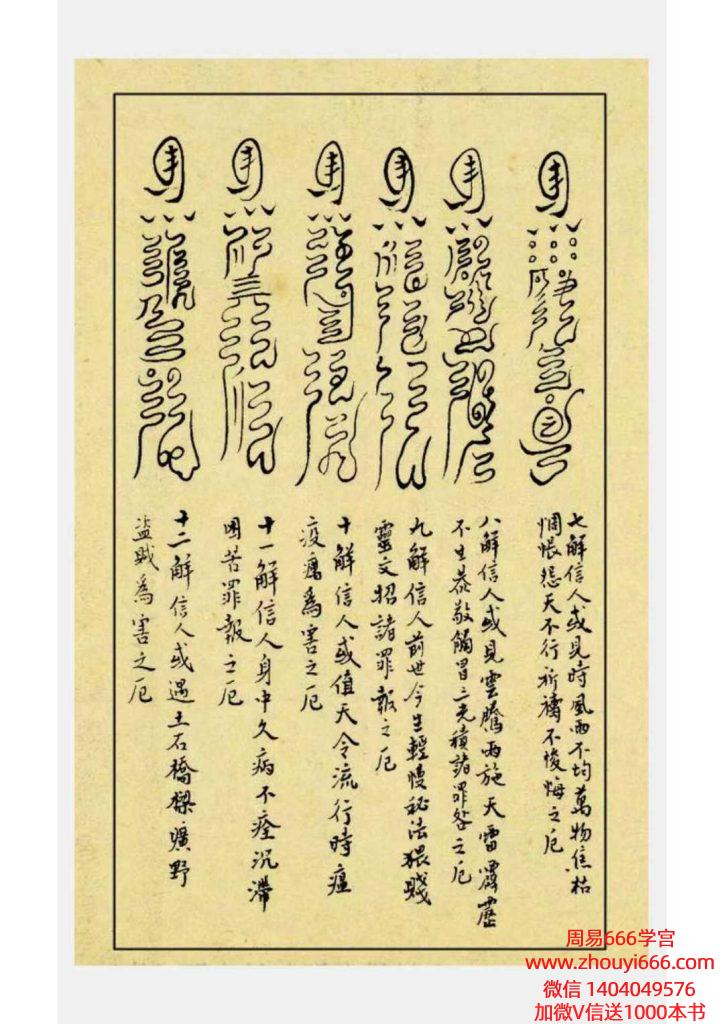 七解信人或見時風雨不均萬物焦枯
惆悵怨天不行祈禱不悛悔之厄
八解信人或見雲騰雨施天雷霹靂
不生恭敬觸冒三光積諸罪咎之厄
九解信人前世今生輕慢秘法猥賤
靈文招諸罪報之厄
十解信人或值天令流行時瘟
疫癘為害之厄
十一解信人身中久病不痊沉滯
困苦罪報之厄
十二解信人或遇土石橋樑曠野
盜賊為害之厄
周易666学宫
www.zhouyi666.com
微信 1404049576
加微V信送1000本书